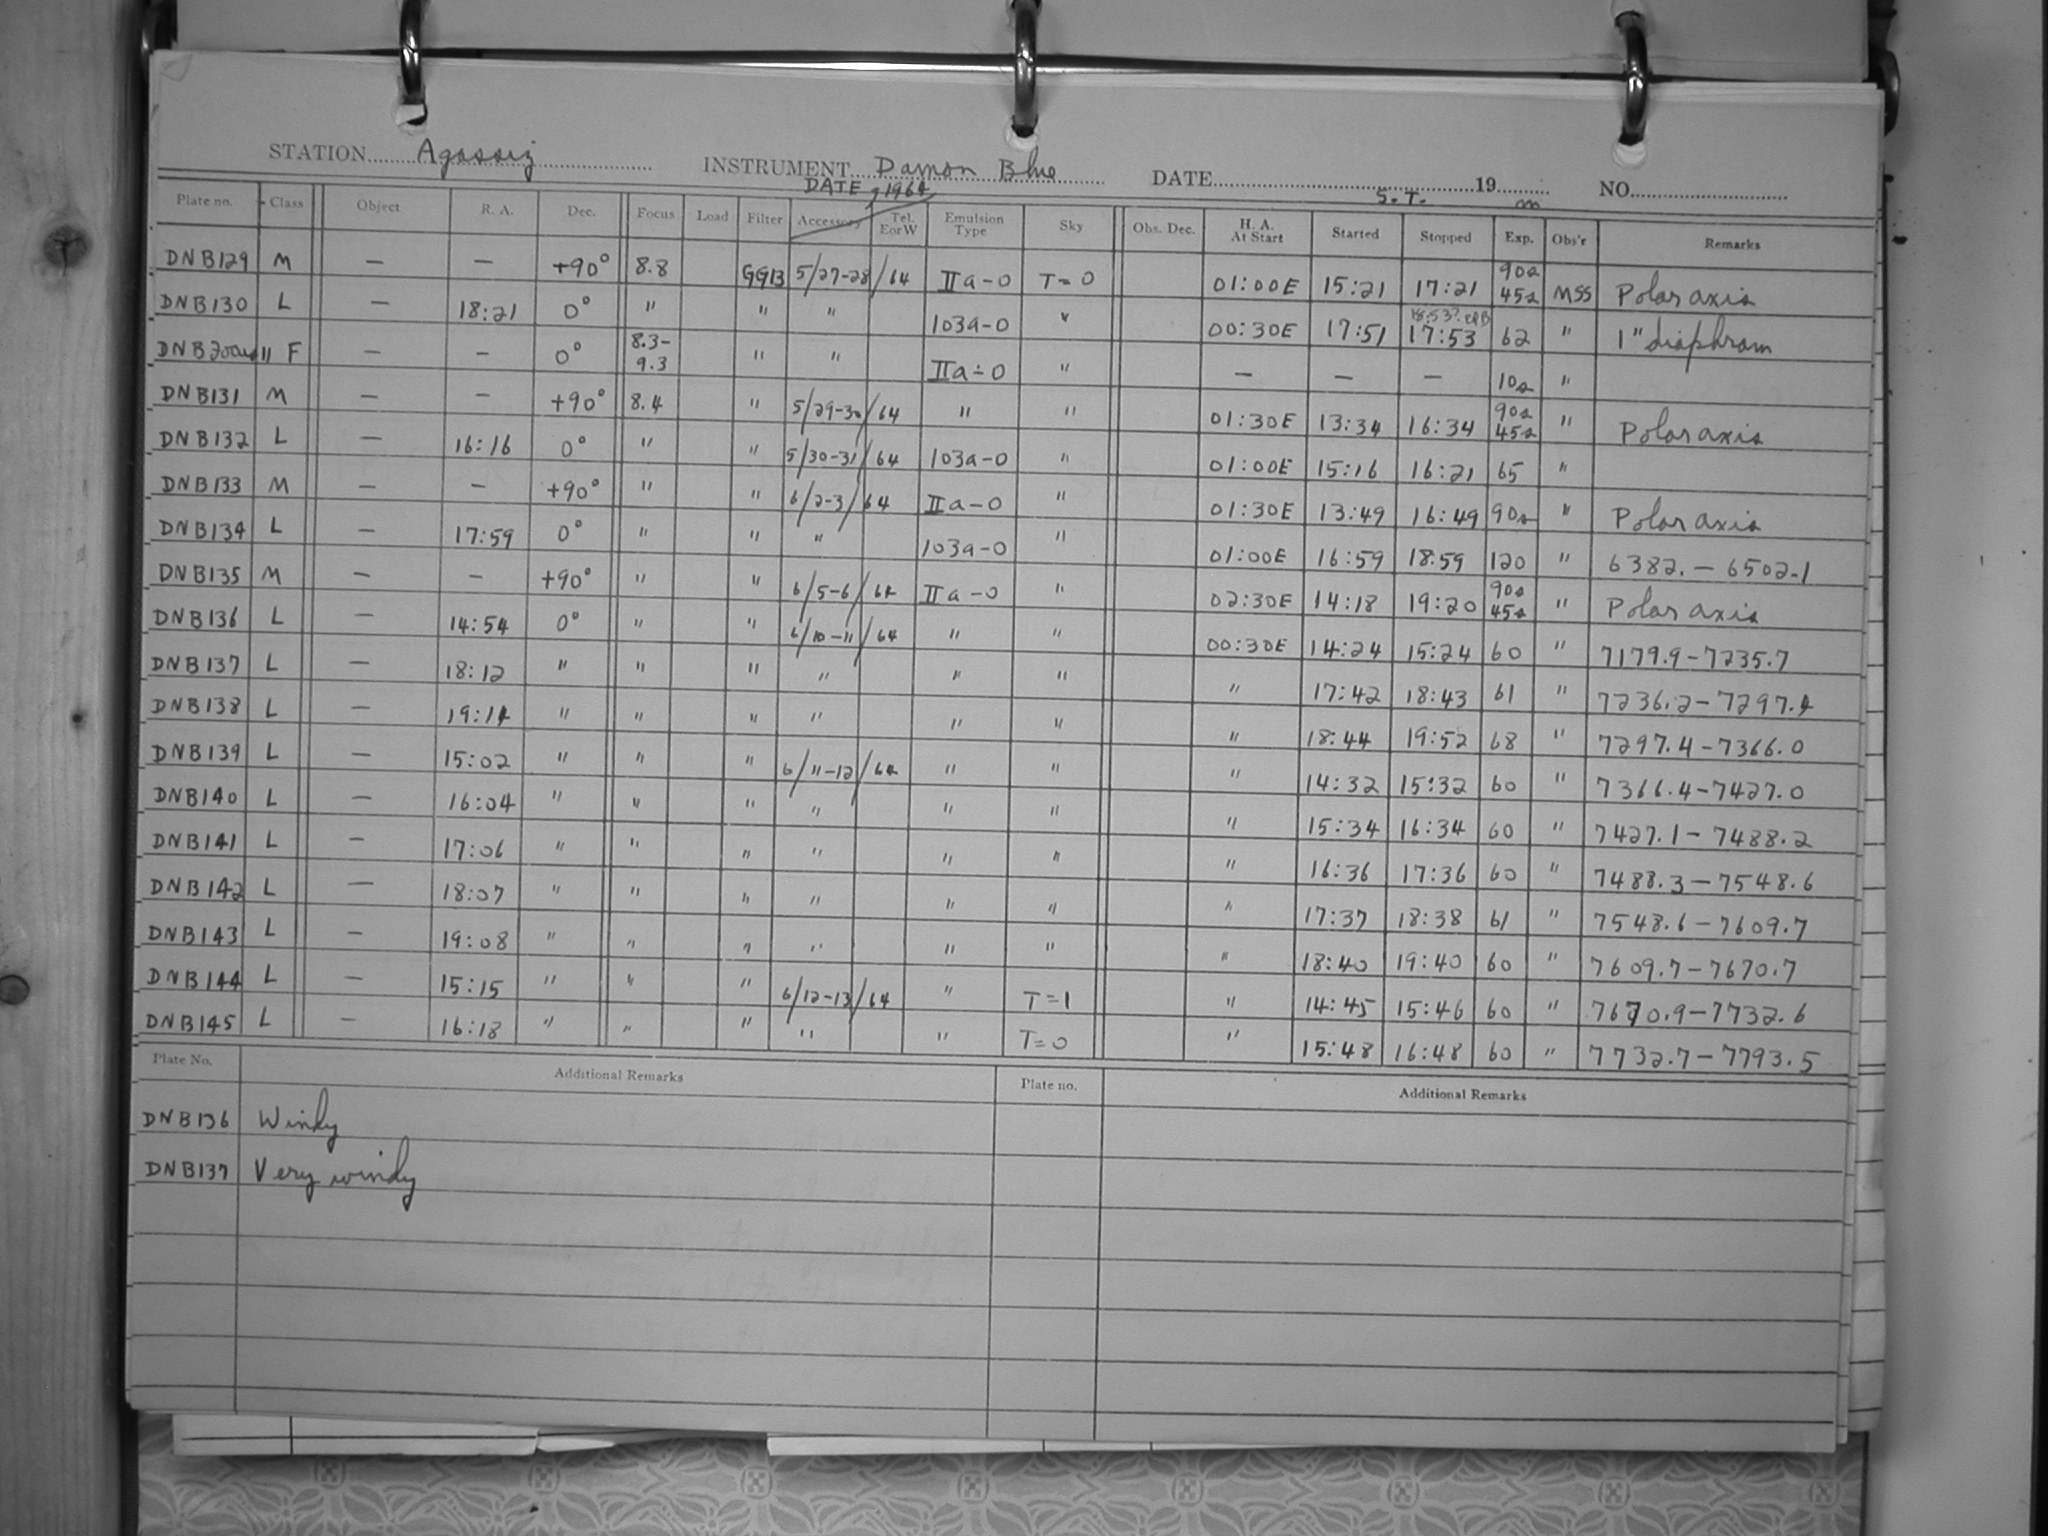 STATION Agassiz INSTRUMENT Damon Blue DATE 19 NO.
DATE, 1964 S.T. m
Plate no. Class Object R. A. Dec. Focus Load Filter Accessory Tel. EorW Emulsion Type Sky Obs. Dec. H. A. At Start Started Stopped Exp. Obs'r Remarks
DNB129 M — — +90° 8.8 GG13 5/27-28/64 IIa-O T=0 01:00E 15:21 17:21 90s 45s MSS Polar axis
DNB130 L — 18:21 0° " " " 103a-O " 00:30E 17:51 18:53? 17:53 62 " 1" diaphram
F — — 0° 8.3-9.3 " " IIa-O " — — — 10s "
DNB131 M — — +90° 8.4 " 5/29-30/64 " " 01:30E 13:34 16:34 90s 45s " Polar axis
DNB132 L — 16:16 0° " " 5/30-31/64 103a-O " 01:00E 15:16 16:21 65 "
DNB133 M — — +90° " " 6/2-3/64 IIa-O " 01:30E 13:49 16:49 90s " Polar axis
DNB134 L — 17:59 0° " " " 103a-O " 01:00E 16:59 18:59 120 " 6382.-6502.1
DNB135 M — — +90° " " 6/5-6/64 IIa-O " 02:30E 14:18 19:20 90s 45s " Polar axis
DNB136 L — 14:54 0° " " 6/10-11/64 " " 00:30E 14:24 15:24 60 " 7179.9-7235.7
DNB137 L — 18:12 " " " " " " " 17:42 18:43 61 " 7236.2-7297.4
DNB138 L — 19:14 " " " " " " " 18:44 19:52 68 " 7297.4-7366.0
DNB139 L — 15:02 " " " 6/11-12/64 " " " 14:32 15:32 60 " 7366.4-7427.0
DNB140 L — 16:04 " " " " " " " 15:34 16:34 60 " 7427.1-7488.2
DNB141 L — 17:06 " " " " " " " 16:36 17:36 60 " 7488.3-7548.6
DNB142 L — 18:07 " " " " " " " 17:37 18:38 61 " 7548.6-7609.7
DNB143 L — 19:08 " " " " " " " 18:40 19:40 60 " 7609.7-7670.7
DNB144 L — 15:15 " " " 6/12-13/64 " T=1 " 14:45 15:46 60 " 7670.9-7732.6
DNB145 L — 16:18 " " " " " T=0 " 15:48 16:48 60 " 7732.7-7793.5
Plate No. Additional Remarks Plate no. Additional Remarks
DNB136 Windy
DNB137 Very windy